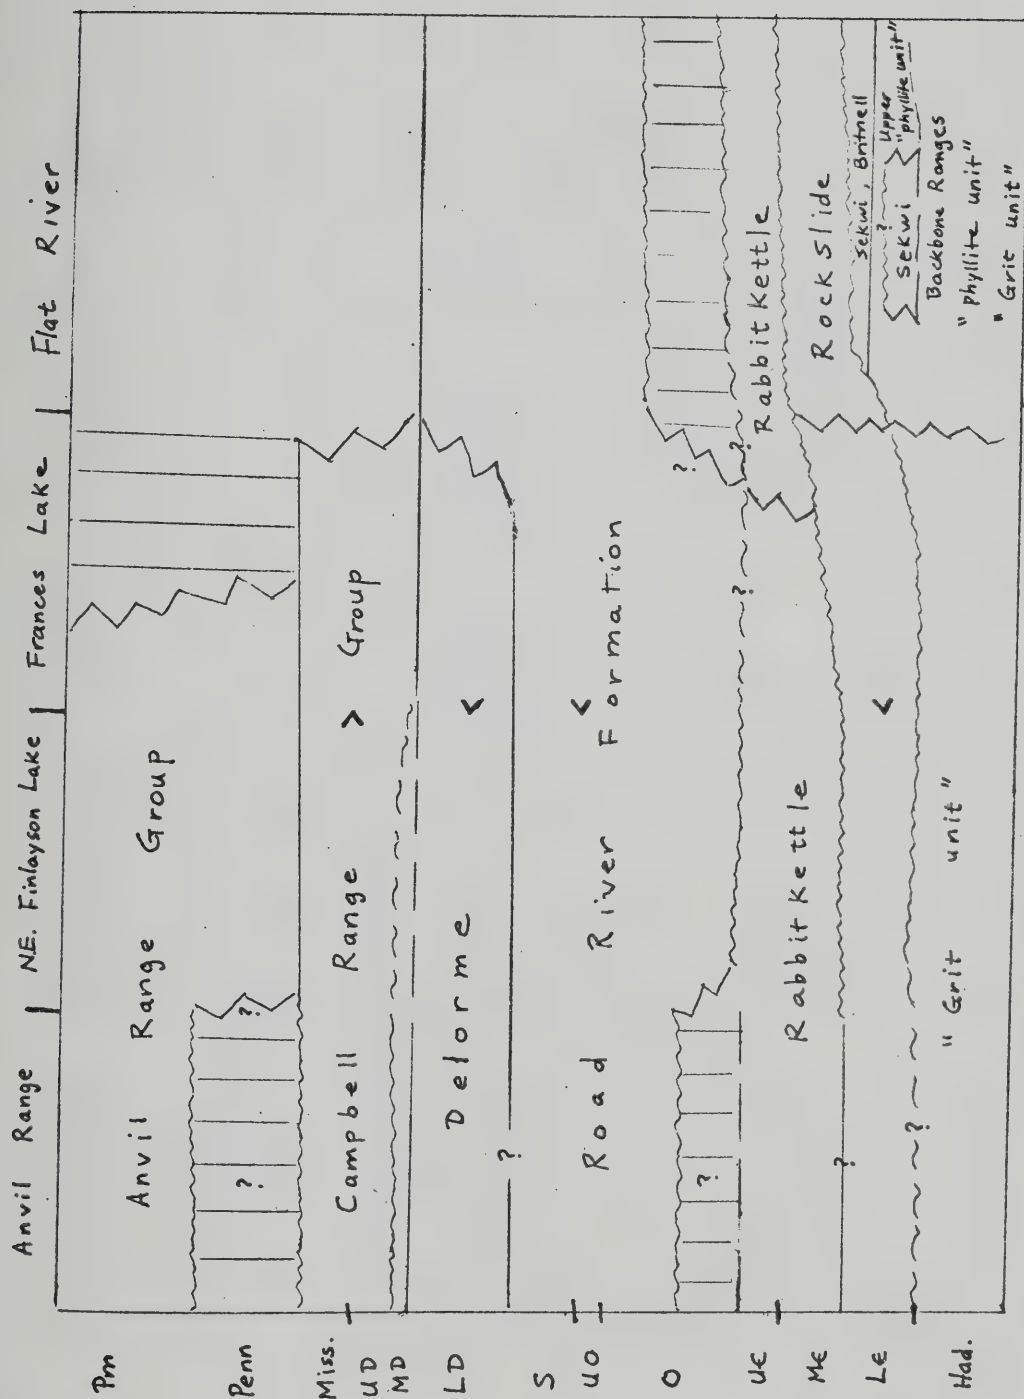 Anvil Range | N.E. Finlayson Lake | Frances Lake | Flat River
Pm
Penn
Miss.
UD
MD
LD
S
UO
O
UЄ
MЄ
LЄ
Had.
Anvil Range Group
?
?
Campbell Range > Group
Delorme <
?
<
Road River Formation
?
?
?
?
Rabbitkettle
Rabbitkettle
Rockslide
?
<
Sekwi, Britnell
?
Upper
"phyllite unit"
Sekwi
Backbone Ranges
"phyllite unit"
?
"Grit unit"
"Grit unit"